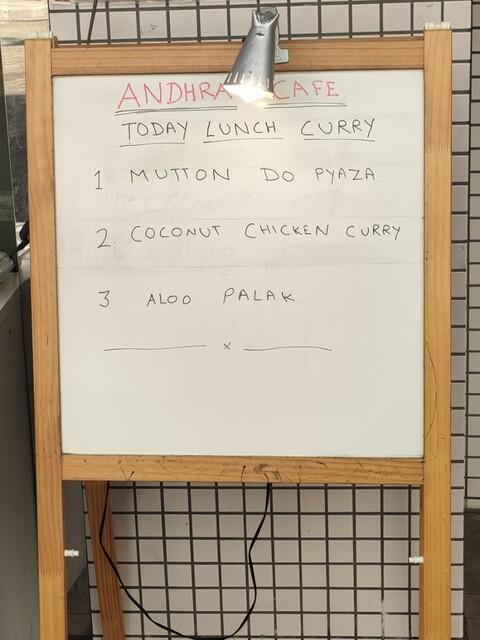 ANDHRA CAFE
TODAY LUNCH CURRY
1. MUTTON DO PYAZA.
2. COCONUT CHICKEN CURRY
3. ALOO PALAK.
x